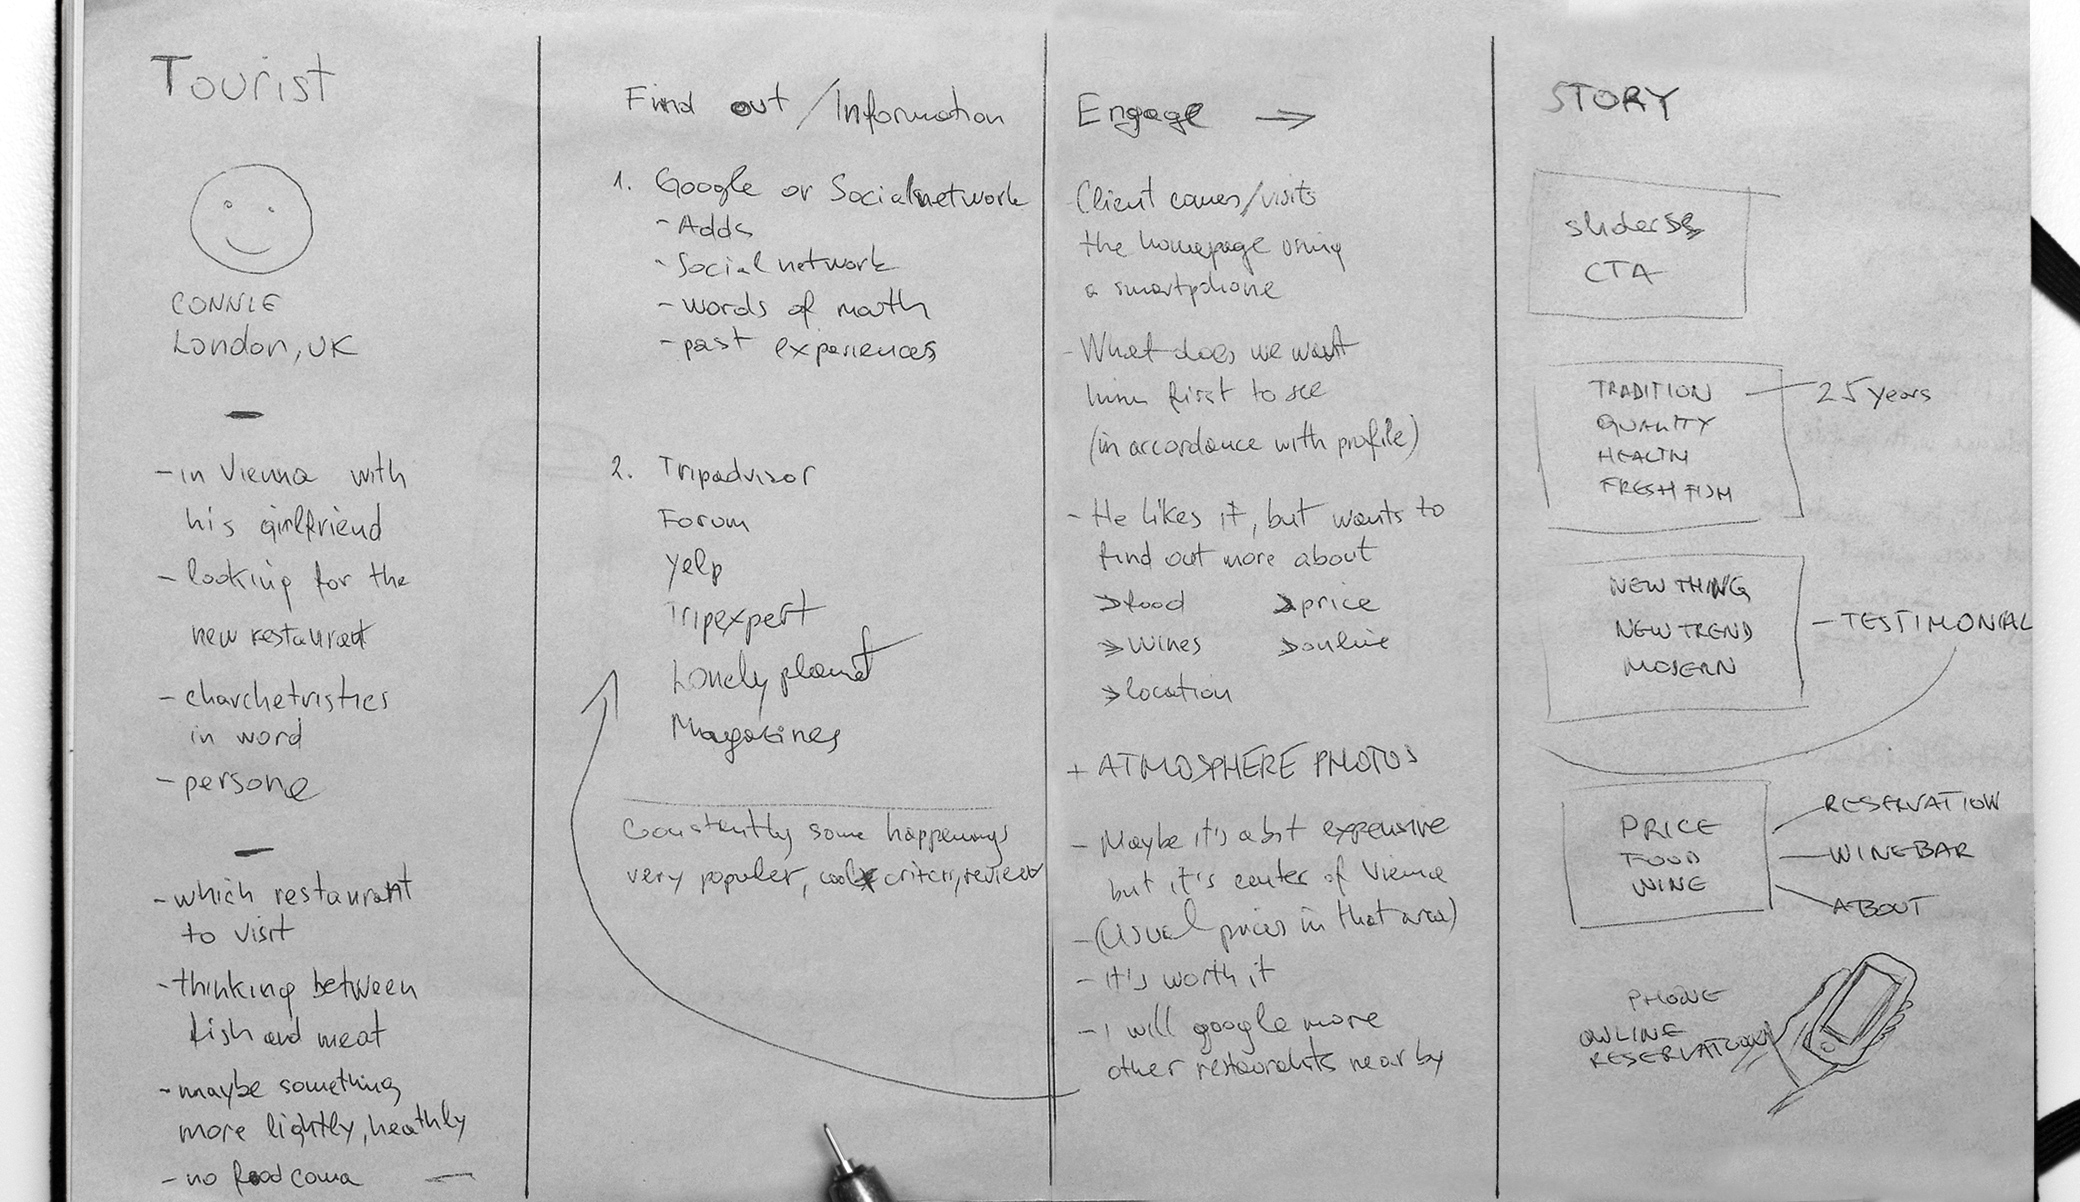 Tourist
CONNIE
London, UK
- in Vienna with
his girlfriend
- looking for the
new restaurant
- charchetristics
in word
- persone
- which restaurant
to visit
- thinking between
fish and meat
- maybe something
more lightly, heathly
- no food coma
Find out / Information
1. Google or Socialnetwork
- Adds
- Social network
- words of math
- past experiences
2. Tripadvisor
Forum
Yelp
Tripexpert
Lonely planet
Magazines
Constantly some happenings
very populer, critics, review
Engage →
Client comes/visits
the homepage using
a smartphone
- What does we want
him first to see
(in accordance with profile)
- He likes it, but wants to
find out more about
> food > price
> Wines > online
> location
+ ATMOSPHERE PHOTOS
- Maybe it's a bit expensive
but it's center of Vienna
- (Usual prices in that area)
- It's worth it
- I will google more
other restaurants near by
STORY
sliders
CTA
TRADITION - 25 years
QUALITY
HEALTH
FRESH FISH
NEW THING
NEW TREND - TESTIMONIAL
MODERN
PRICE
FOOD
WINE
RESERVATION
WINEBAR
ABOUT
PHONE
ONLINE
RESERVATION